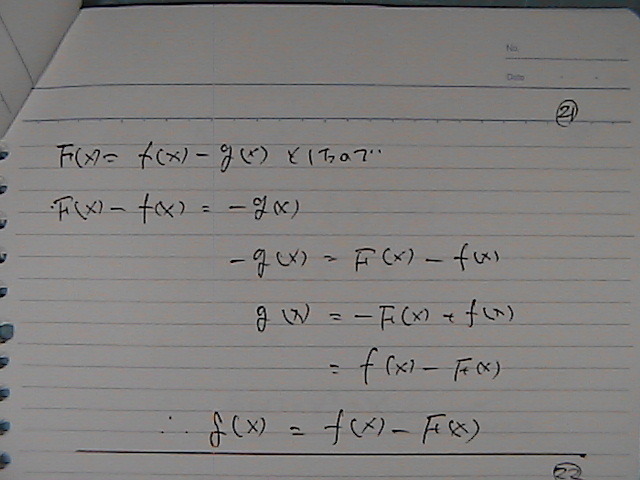 No.
Date
㉑
F(x) = f(x) − g(x) としたので
・F(x) − f(x) = −g(x)
−g(x) = F(x) − f(x)
g(x) = −F(x) + f(x)
= f(x) − F(x)
∴ g(x) = f(x) − F(x)
㉒